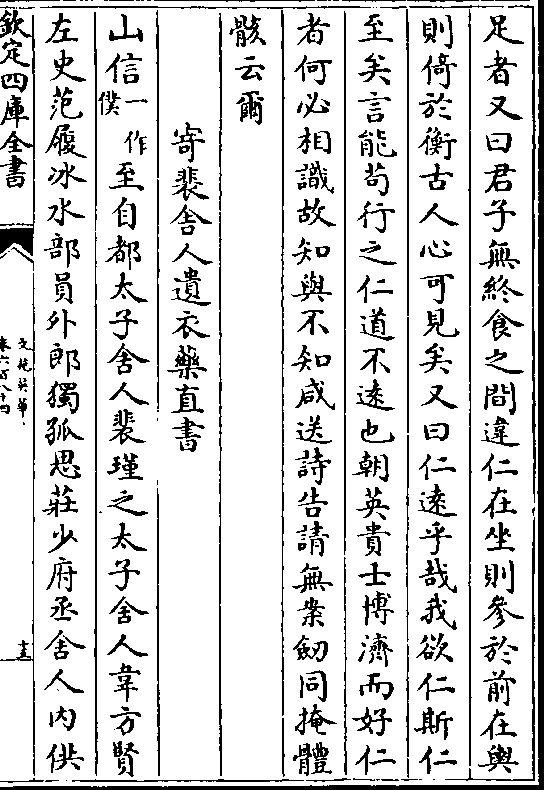 足者又曰君子無終食之間違仁在坐則參於前在輿
則倚於衡古人心可見矣又曰仁逺乎哉我欲仁斯仁
至矣言能茍行之仁道不逺也朝英貴士博濟而好仁
者何必相識故知與不知咸送詩告請無案劒同掩體
骸云爾
寄裴舍人遺衣藥直書
山信一作僕至自都太子舍人裴瑾之太子舍人韋方賢
左史范履冰水部員外郎獨孤思莊少府丞舍人内供
欽定四庫全書
文苑英華
卷六百八十四